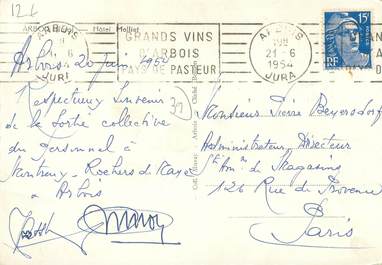 124
ARBOIS
Hôtel Molliet
ARBOIS
JURA
GRANDS VINS
D'ARBOIS
PAYS DE PASTEUR
ARBOIS
21-6
1954
JURA
15F
RF
Arbois 20 juin 1954
Respectueux Souvenir
de la Sortie collective
du personnel à
Montreux - Rochers de Naye
à Arbois
39
Monsieur Pierre Beyersdorf
Administrateur-Directeur
126 Rue de Provence
Paris